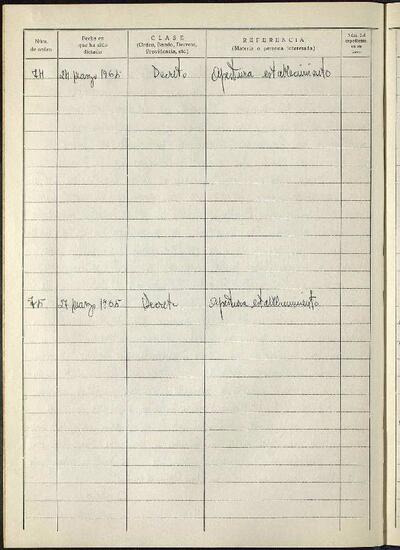 Núm. de orden
Fecha en que ha sido dictado
CLASE
(Orden, Bando, Decreto, Providencia, etc.)
REFERENCIA
(Materia o persona interesada)
Núm. del expediente
74 24 marzo 1965 Decreto Apertura establecimiento
75 27 marzo 1965 Decreto Apertura establecimiento